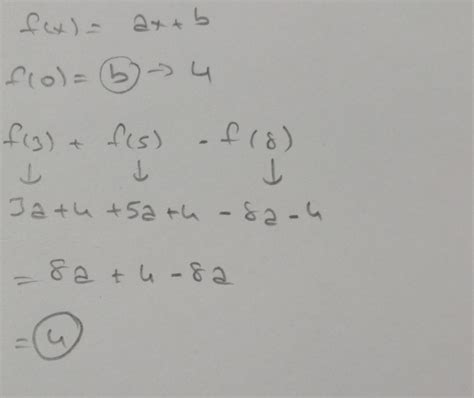 f(x) = ax + b
f(0) = b → 4
f(3) + f(5) - f(8)
↓ ↓ ↓
3a + 4 + 5a + 4 - 8a - 4
= 8a + 4 - 8a
= 4